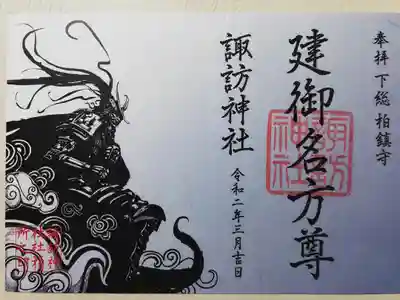 奉拝 下総 柏鎮守
建御名方尊
諏訪神社
令和二年三月吉日
諏訪神社